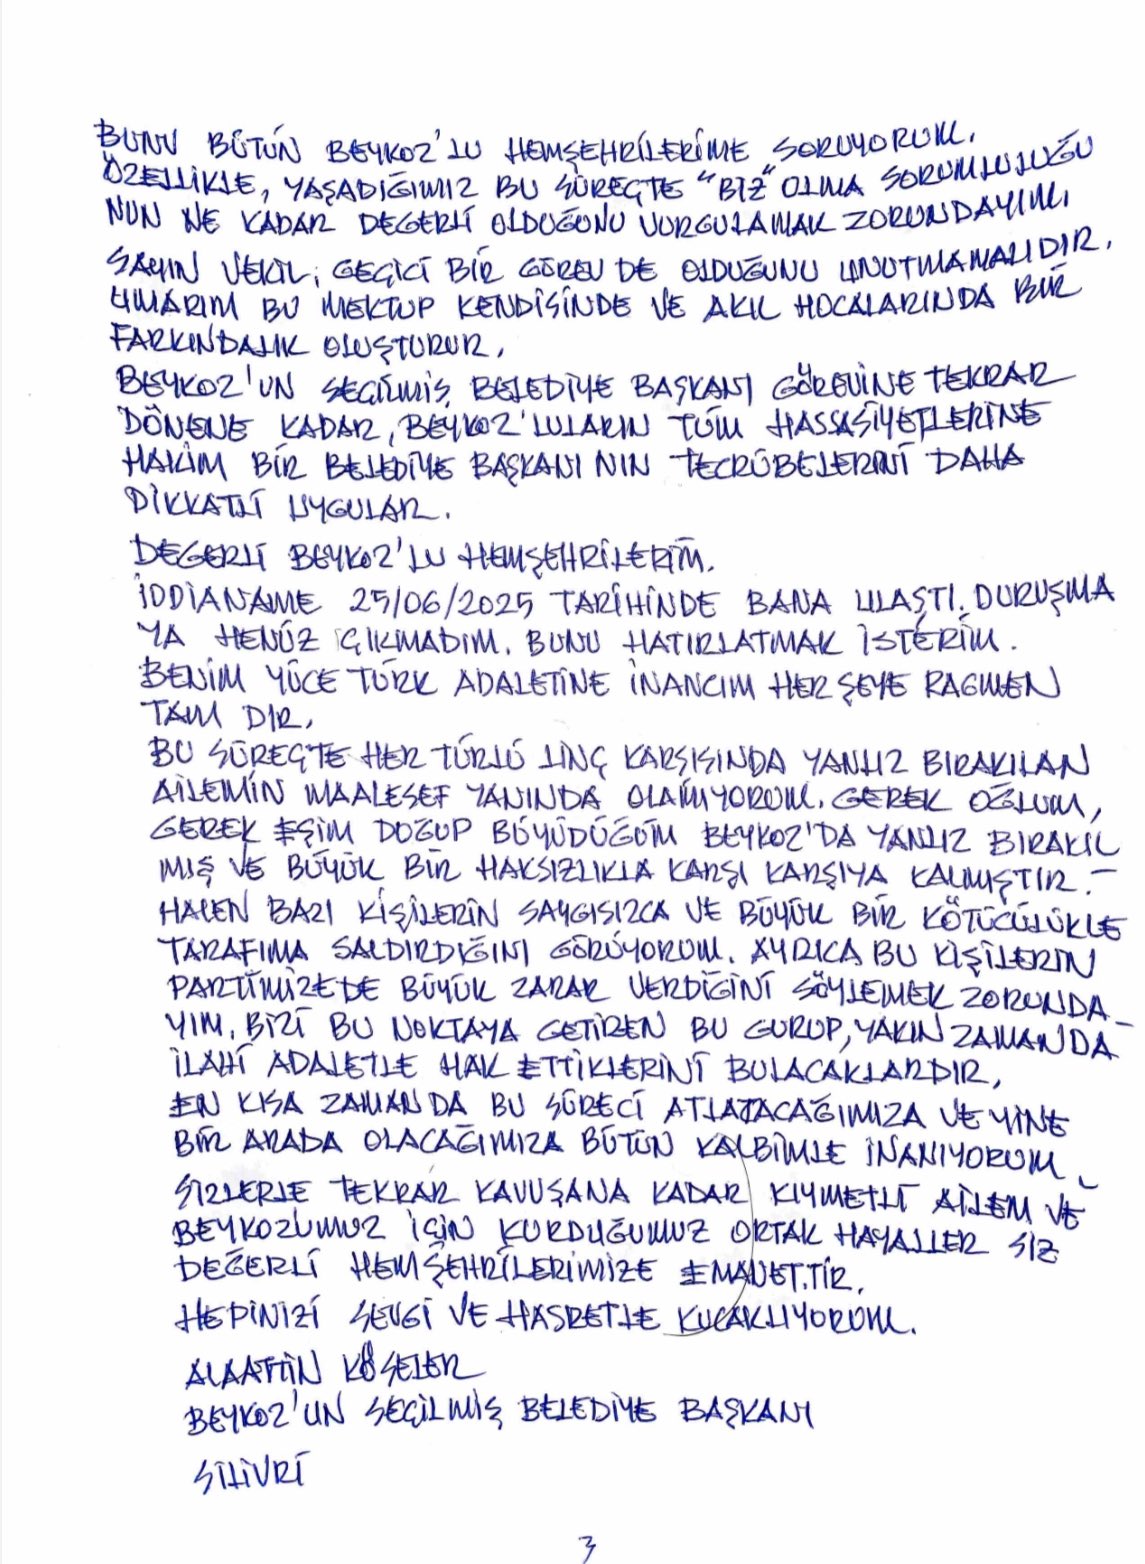 BUNU BÜTÜN BEYKOZ'LU HEMŞEHRİLERİME SORUYORUM.
ÖZELLİKLE, YAŞADIĞIMIZ BU SÜREÇTE "BİZ" OLMA SORUMLULUĞU
NUN NE KADAR DEĞERLİ OLDUĞUNU VURGULAMAK ZORUNDAYIM.
SAYIN VEKİL, GEÇİCİ BİR GÖREV DE OLDUĞUNU UNUTMAMALIDIR.
UMARIM BU MEKTUP KENDİSİNDE VE AKIL HOCALARINDA BİR
FARKINDALIK OLUŞTURUR.
BEYKOZ'UN SEÇİLMİŞ BELEDİYE BAŞKANI GÖREVİNE TEKRAR
DÖNENE KADAR, BEYKOZ'LULARIN TÜM HASSASİYETLERİNE
HAKİM BİR BELEDİYE BAŞKANI NIN TECRÜBELERİNİ DAHA
DİKKATLİ UYGULAR.
DEĞERLİ BEYKOZ'LU HEMŞEHRİLERİM.
İDDİANAME 25/06/2025 TARİHİNDE BANA ULAŞTI. DURUŞMA
YA HENÜZ ÇIKMADIM. BUNU HATIRLATMAK İSTERİM.
BENİM YÜCE TÜRK ADALETİNE İNANCIM HER ŞEYE RAGMEN
TAM DIR.
BU SÜREÇTE HER TÜRLÜ LİNÇ KARŞISINDA YANLIZ BIRAKILAN
AİLEMİN MAALESEF YANINDA OLAMIYORUM. GEREK OĞLUM,
GEREK EŞİM DOĞUP BÜYÜDÜĞÜM BEYKOZ'DA YANLIZ BIRAKIL
MIŞ VE BÜYÜK BİR HAKSIZLIKLA KARŞI KARŞIYA KALMIŞTIR.-
HALEN BAZI KİŞİLERİN SAYGISIZCA VE BÜYÜK BİR KÖTÜCÜLÜKLE
TARAFIMA SALDIRDIĞINI GÖRÜYORUM. AYRICA BU KİŞİLERİN
PARTİMİZEDE BÜYÜK ZARAR VERDİĞİNİ SÖYLEMEK ZORUNDA-
YIM. BİZİ BU NOKTAYA GETİREN BU GURUP, YAKIN ZAMANDA-
İLAHİ ADALETLE HAK ETTİKLERİNİ BULACAKLARDIR,
EN KISA ZAMANDA BU SÜRECİ ATLATACAĞIMIZA VE YİNE
BİR ARADA OLACAĞIMIZA BÜTÜN KALBİMLE İNANIYORUM
SİZLERLE TEKRAR KAVUŞANA KADAR KIYMETLİ AİLEM VE
BEYKOZUMUZ İÇİN KURDUĞUMUZ ORTAK HAYALLER SİZ
DEĞERLİ HEMŞEHRİLERİMİZE EMANET.TİR.
HEPİNİZİ SEVGİ VE HASRETLE KUCAKLIYORUM.
ALAATTİN KÖSELER
BEYKOZ'UN SEÇİLMİŞ BELEDİYE BAŞKANI
SİLİVRİ
3